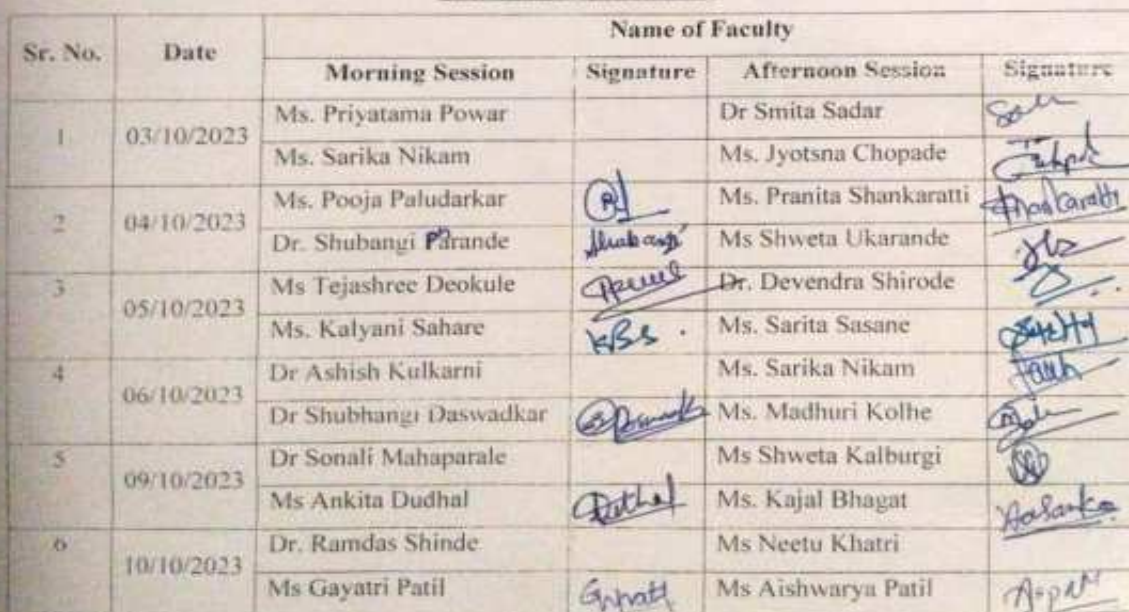 Name of Faculty
Sr. No. Date
Morning Session Signature Afternoon Session Signature
1 03/10/2023 Ms. Priyatama Powar Dr Smita Sadar
Ms. Sarika Nikam Ms. Jyotsna Chopade
2 04/10/2023 Ms. Pooja Paludarkar Ms. Pranita Shankaratti Shankaratti
Dr. Shubangi Parande Shubangi Ms Shweta Ukarande
3 05/10/2023 Ms Tejashree Deokule Dr. Devendra Shirode
Ms. Kalyani Sahare KBS. Ms. Sarita Sasane
4 06/10/2023 Dr Ashish Kulkarni Ms. Sarika Nikam
Dr Shubhangi Daswadkar Ms. Madhuri Kolhe
5 09/10/2023 Dr Sonali Mahaparale Ms Shweta Kalburgi
Ms Ankita Dudhal Ms. Kajal Bhagat
6 10/10/2023 Dr. Ramdas Shinde Ms Neetu Khatri
Ms Gayatri Patil Ms Aishwarya Patil